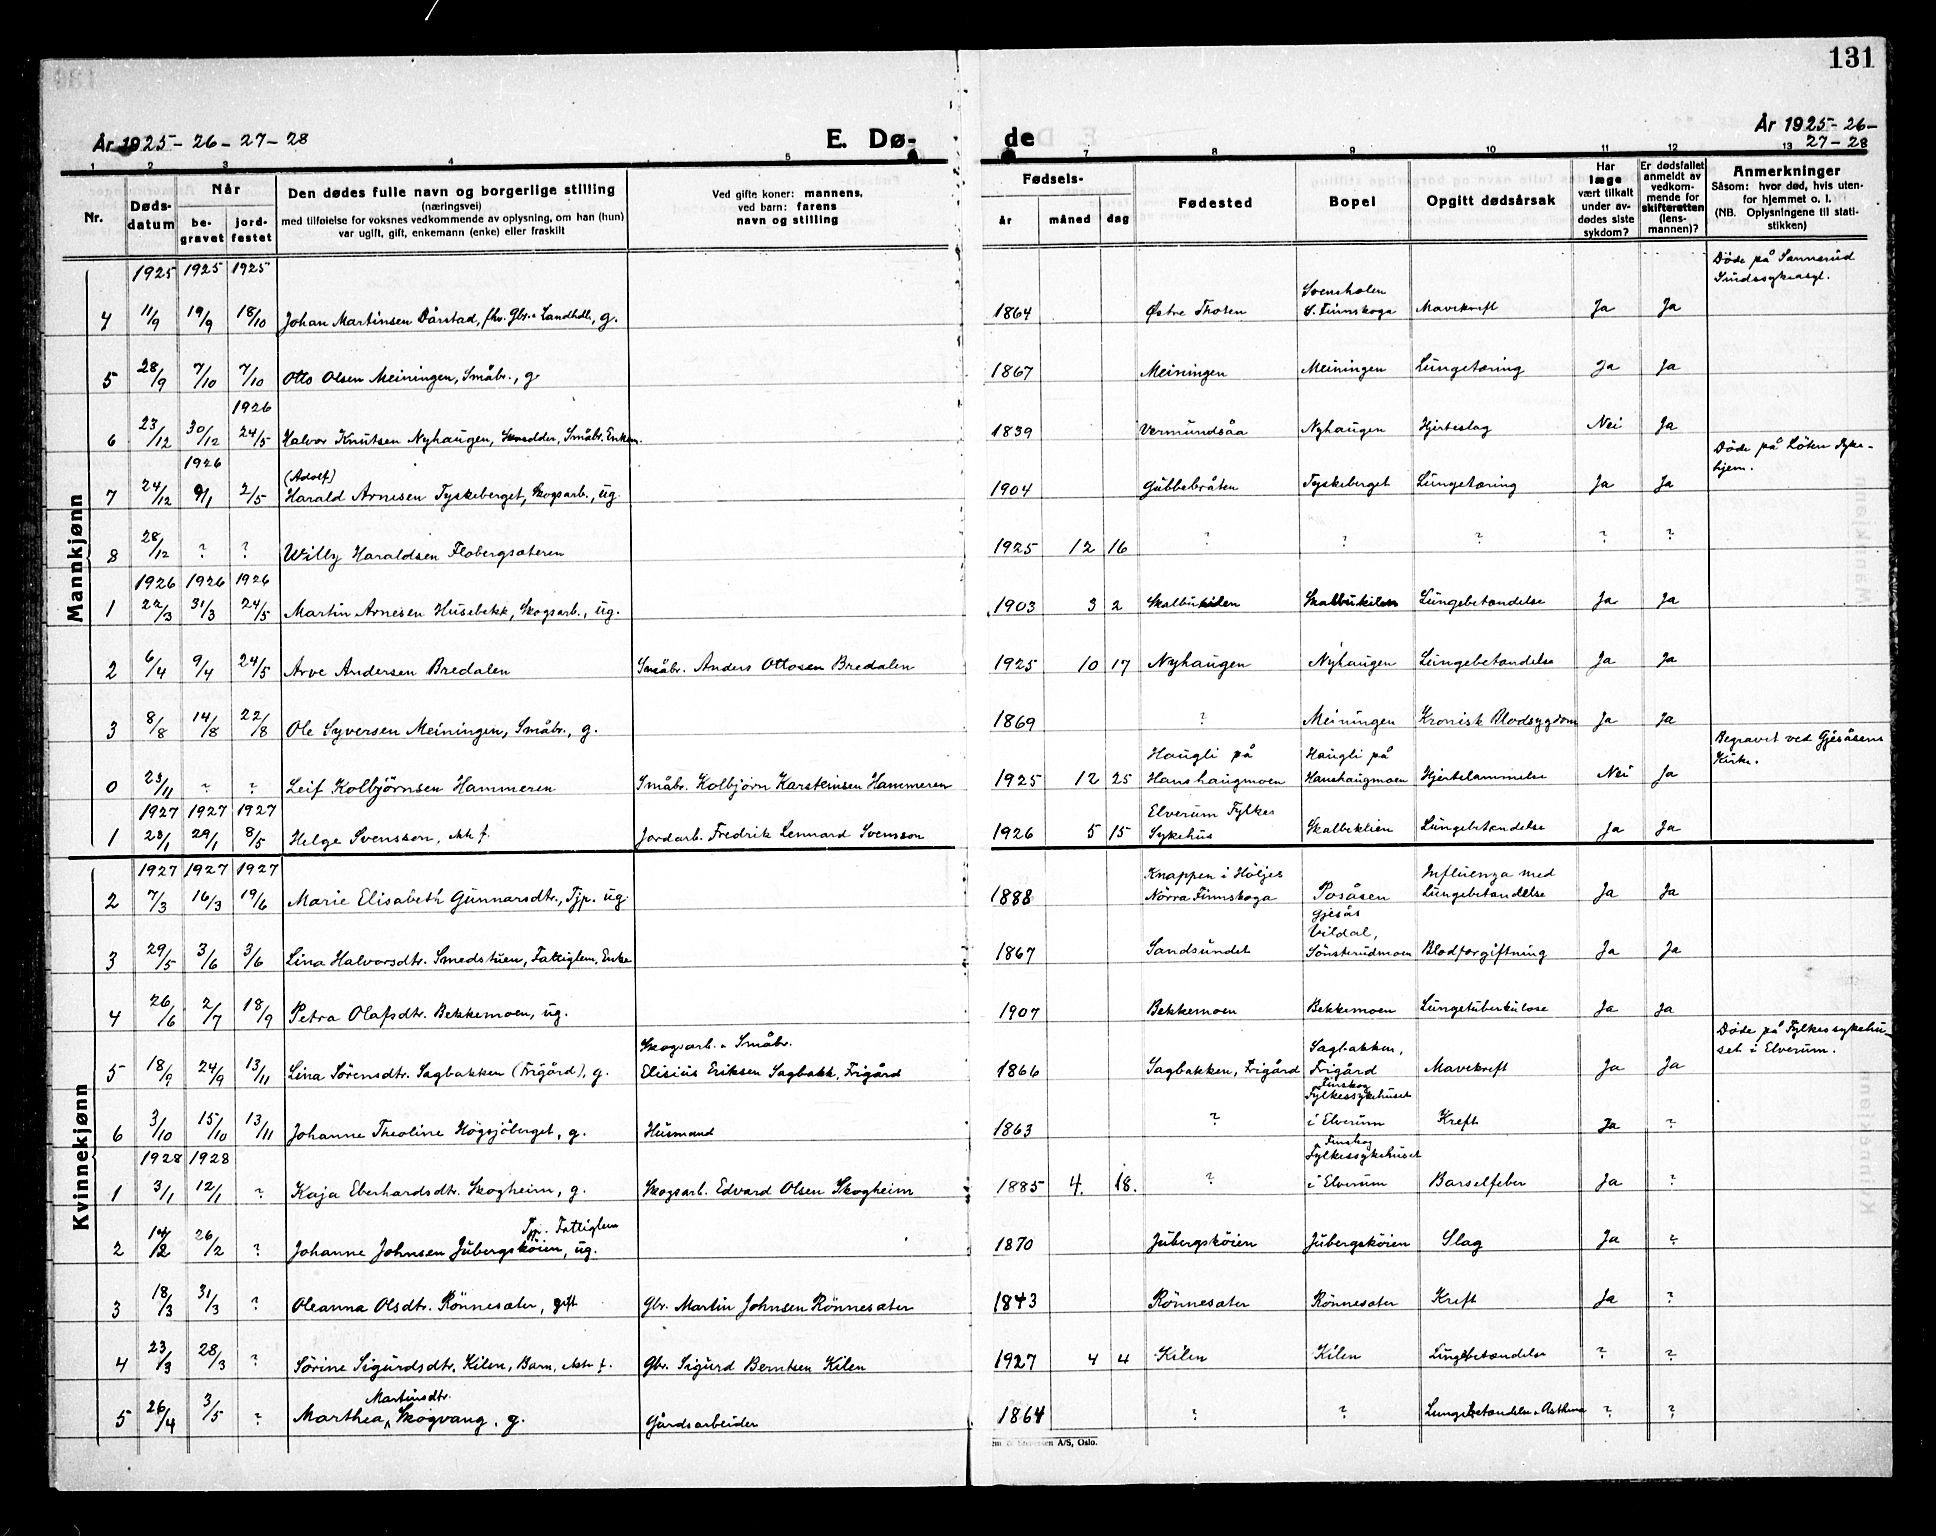 131
År 1925-26-27-28
E. Dø-
de
År 1925-26-
27-28
1 2 3 4 5 7 8 9 10 11 12 13
Nr.
Døds-
datum
Når
be-
gravet
jord-
festet
Den dødes fulle navn og borgerlige stilling
(næringsvei)
med tilføielse for voksnes vedkommende av oplysning, om han (hun)
var ugift, gift, enkemann (enke) eller fraskilt
Ved gifte koner: mannens,
ved barn: farens
navn og stilling
Fødsels-
år måned dag
Fødested
Bopel
Opgitt dødsårsak
Har
læge
vært tilkalt
under av-
dødes siste
sykdom?
Er dødsfallet
anmeldt av
vedkom-
mende for
skifteretten
(lens-
mannen)?
Anmerkninger
Såsom: hvor död, hvis uten-
for hjemmet o. l.
(NB. Oplysningene til stati-
stikken)
Mannkjønn
1925 1925 1925
Döde på Sannerud
Sindssykeasyl.
Svensholen
4 11/9 19/9 18/10 Johan Martinsen Dårstad, fhv. Gbr. Landhdl., g. 1864 Østre Thoten S. Finnskoga Mavekreft Ja Ja
5 28/9 7/10 7/10 Otto Olsen Meiningen, Småbr., g. 1867 Meiningen Meiningen Lungetæring Ja Ja
1926
6 23/12 30/12 24/5 Halvor Knutsen Nyhaugen, Småbr. Enkem. 1839 Vermundsåa Nyhaugen Hjerteslag Nei Ja
1926
(Adolf)
Döde på Löten Syke-
hjem.
7 24/12 9/1 2/5 Harald Arnesen Tyskeberget, Skogsarb., ug. 1904 Gubbebråten Tyskeberget Lungetæring Ja Ja
8 28/12 ? ? Willy Haraldsen Flobergsæteren 1925 12 16 ? ? ? ? ?
1926 1926 1926
1 22/3 31/3 24/5 Martin Arnesen Husebekk, Skogsarb., ug. 1903 3 2 Skalbukilen Skalbukilen Lungebetændelse Ja Ja
2 6/4 9/4 24/5 Arve Andersen Bredalen Småbr. Anders Ottosen Bredalen 1925 10 17 Nyhaugen Nyhaugen Lungebetændelse Ja Ja
3 8/8 14/8 22/8 Ole Syversen Meiningen, Småbr., g. 1869 ? Meiningen Kronisk Blodsygdom Ja Ja
Begravet ved Gjesåsens
Kirke.
Haugli på Haugli på
0 23/11 ? ? Leif Kolbjörnsen Hammeren Småbr. Kolbjörn Karstensen Hammeren 1925 12 25 Hanshaugmoen Hanshaugmoen Hjertelammelse Nei Ja
1927 1927 1927
Elverum Fylkes
1 23/1 29/1 8/5 Helge Svensson, ekte f. Jordarb. Fredrik Lennard Svensson 1926 5 15 Sykehus Skalbekilen Lungebetændelse Ja Ja
Kvinnekjønn
1927 1927 1927
Knappen i Höljes Influenza med
2 7/3 16/3 19/6 Marie Elisabeth Gunnarsdtr., Tjp. ug. 1888 Norra Finnskoga Posåsen Lungebetændelse Ja Ja
Gjesås
Vildal,
3 29/5 3/6 3/6 Lina Halvorsdtr. Smedstuen, Fattiglem, Enke 1867 Sandsundet Sönsterudmoen Blodforgiftning Ja Ja
4 26/6 2/7 18/9 Petra Olafsdtr. Bekkemoen, ug. 1907 Bekkemoen Bekkemoen Lungetuberkulose Ja Ja
Döde på Fylkessykehu-
set i Elverum.
Skogsarb. Småbr. Sagbakken,
5 18/9 24/9 13/11 Lina Sörensdtr. Sagbakken (Frigård), g. Elisius Eriksen Sagbakk, Frigård 1866 Sagbakken, Frigård Frigård Mavekreft Ja Ja
Finskog
Fylkessykehuset
6 3/10 15/10 13/11 Johanne Theoline Högsjöberget, g. Husmand 1863 ? i Elverum Kreft Ja ?
1928 1928
Finskog
Fylkessykehuset
1 3/1 12/1 ? Kaja Eberhardsdtr. Skogheim, g. Skogsarb. Edvard Olsen Skogheim 1885 4. 18. ? i Elverum Barselfeber Ja ?
Tjp. Fattiglem
2 14/2 26/2 ? Johanne Johnsen Jubergsköien, ug. 1870 Jubergsköien Jubergsköien Slag Ja ?
3 18/3 31/3 ? Oleanna Olsdtr. Rönnesæter, gift Gbr. Martin Johnsen Rönnesæter 1843 Rönnesæter Rönnesæter Kreft Ja ?
4 23/3 28/3 ? Sörine Sigurdsdtr. Kilen, Barn, ekte f. Gbr. Sigurd Berntsen Kilen 1927 4 4 Kilen Kilen Lungebetændelse ? ?
Martinsdtr.
5 26/4 3/5 ? Marthea Skogvang, g. Gårdsarbeider 1864 ? ? Lungebetændelse Asthma ? ?
A/S, Oslo.